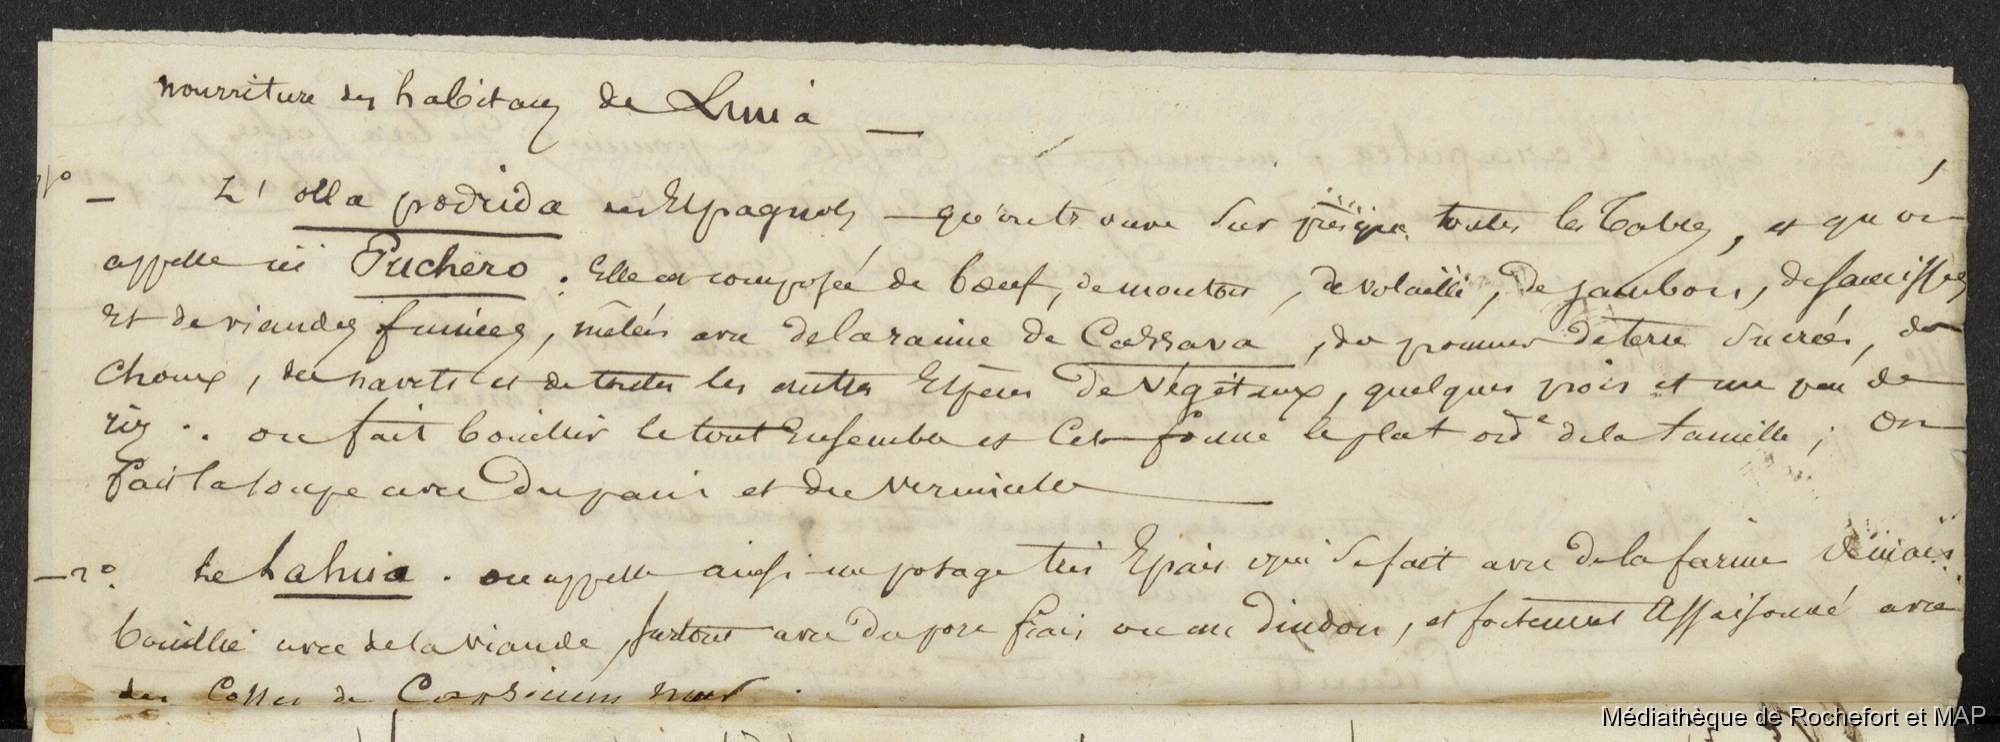 nourriture des habitans de Lima —
1° — L'olla podrida des Espagnols — qu'on trouve sur presque toutes les tables, et qu'on
appelle ici Puchero. Elle est composée de bœuf, de mouton, de volaille, de jambon, de saucisses
et de viandes fumées, mêlées avec de la racine de Cassava, des pommes de terre sucrées, des
choux, des navets et de toutes les autres Espèces de végétaux, quelques pois et un peu de
riz. on fait bouillir le tout Ensemble et c'est le plat ordre de la famille; on
fait la soupe avec du pain et du vermicelle
— 2° Le Lahua. on appelle ainsi un potage très Epais qui se fait avec de la farine de mais
bouillie avec de la viande, surtout avec du porc frais ou un dindon, et fortement assaisonné avec
des Cosses de Capsicum
Médiathèque de Rochefort et MAP